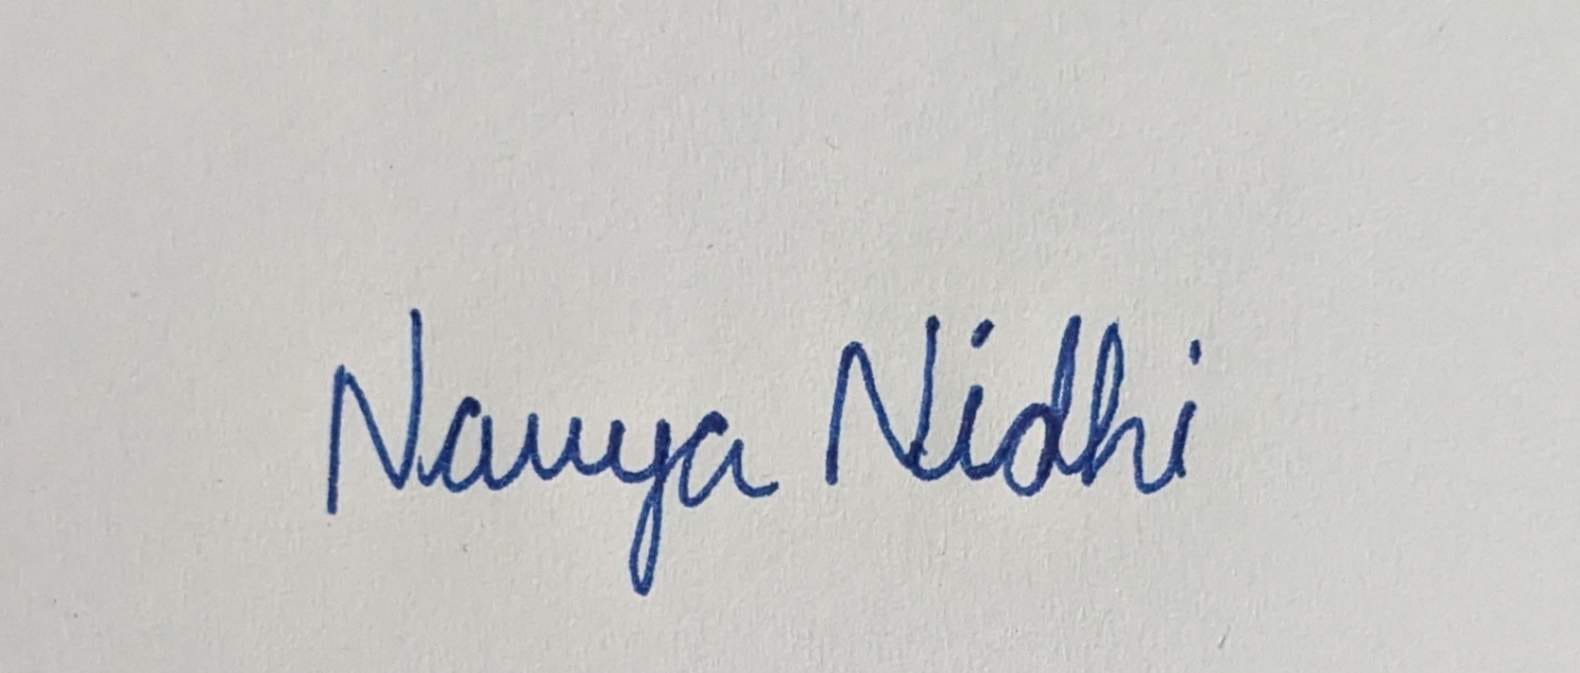 Navya Nidhi